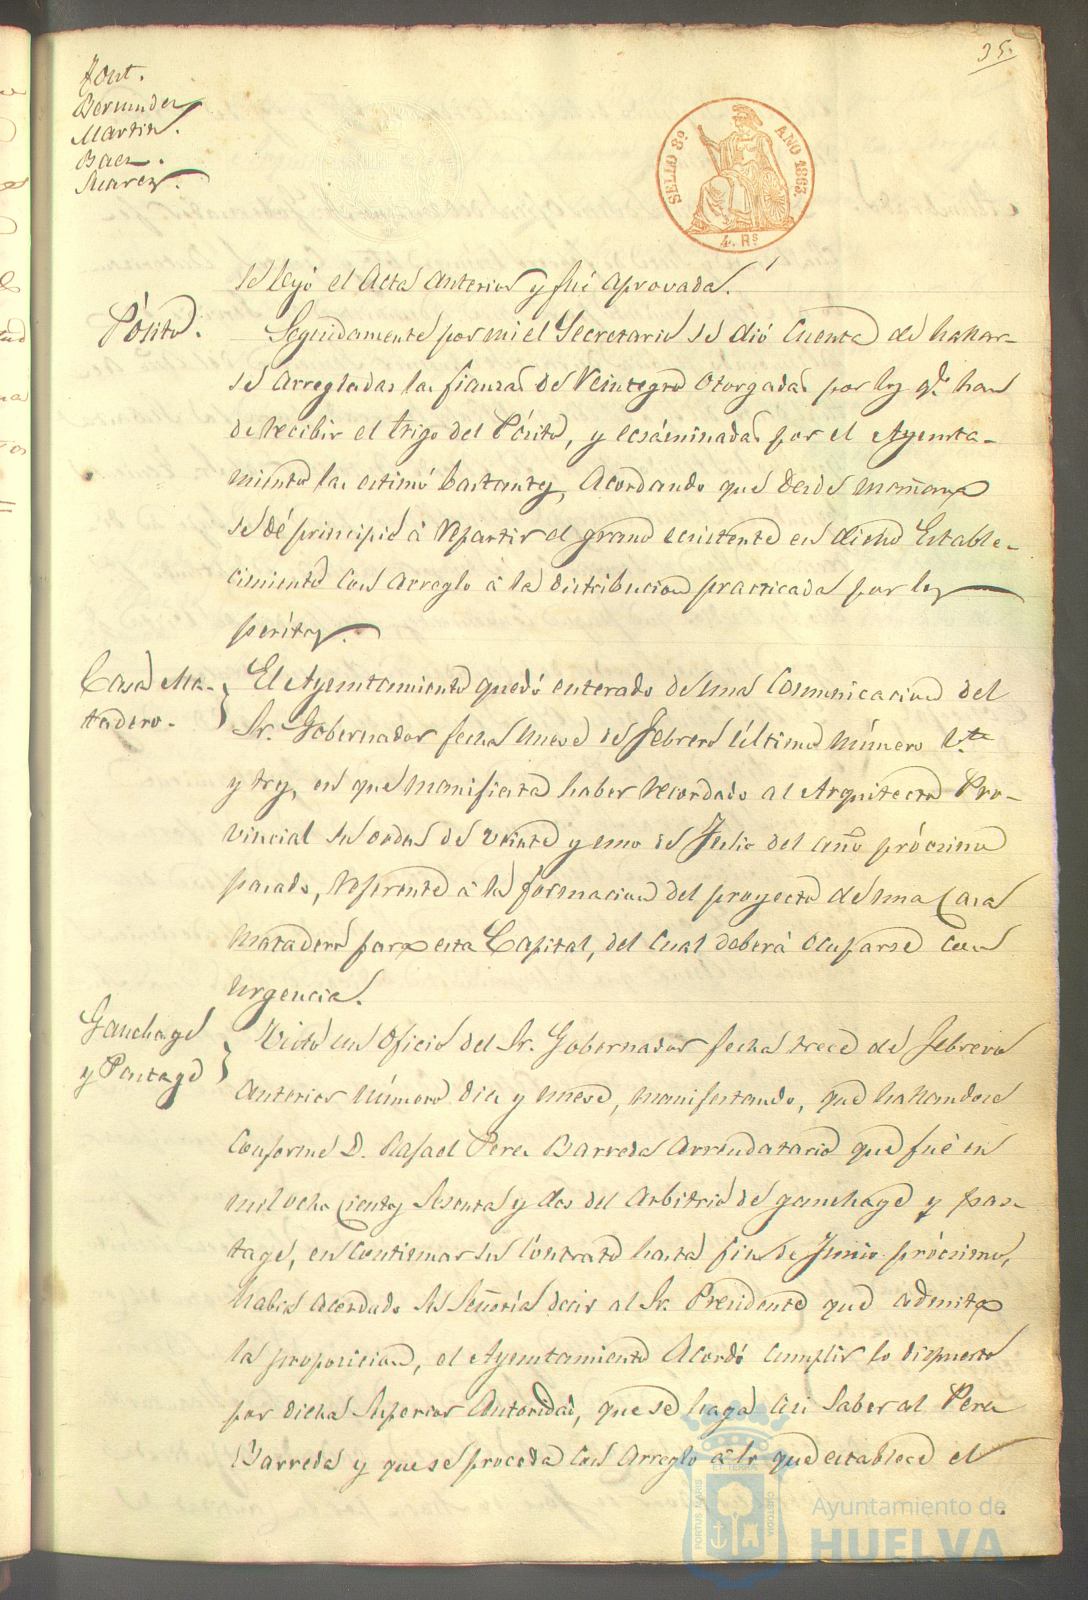 35.
Font.
Bermudez
Martin.
Baez.
Suarez.
SELLO 8º AÑO 1863.
4. Rs
se leyó el Acta anterior y fué aprovada.
Pósito.
Seguidamente por mi el Secretario se dió cuenta de hallar-
se arregladas las fianzas de reintegro otorgadas por los qe. han
de recibir el trigo del Pósito, y ecsáminadas por el Ayunta-
miento las estimó bastantes, acordando que desde mañana
se dé principio á repartir el grano ecsistente en dicho Estable-
cimiento con arreglo á la distribucion practicada por los
peritos.
Casa Ma-
tadero.
El Ayuntamiento quedó enterado de una comunicacion del
Sr. Gobernador fecha nueve de Febrero último número Vte
y tres, en que manifiesta haber recordado al Arquitecto Pro-
vincial su orden de veinte y uno de Julio del año prócsimo
pasado, referente á la formacion del proyecto de una Casa
matadero para esta Capital, del cual deberá ocuparse con
urgencia.
Ganchage
y Postage
Visto un oficio del Sr. Gobernador fecha trece de Febrero
anterior número diez y nueve, manifestando, que hallandose
conforme D. Rafael Perez Barreda arrendatario que fué en
mil ocho cientos sesenta y dos del arbitrio de ganchage y pos-
tage, en continuar su contrato hasta fin de Junio prócsimo,
habia acordado su Señoría decir al Sr. Presidente que admita
la proposicion, el Ayuntamiento acordó cumplir lo dispuesto
por dicha Superior Autoridad, que se haga asi saber al Perez
Barreda y que se proceda con arreglo á lo que establece el
PORTUS MARIS ET TERRAE CUSTODIA
Ayuntamiento de
HUELVA